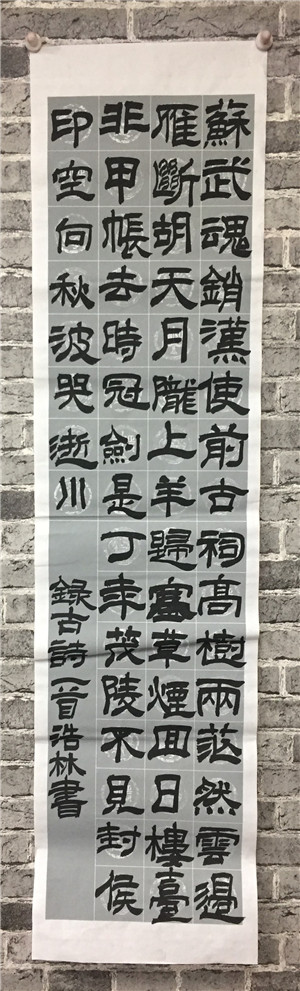 蘇武魂銷漢使前古祠高樹兩茫然雲邊
雁斷胡天月隴上羊歸塞草煙回日樓臺
非甲帳去時冠劍是丁年茂陵不見封侯
印空向秋波哭逝川
錄古詩一首浩林書